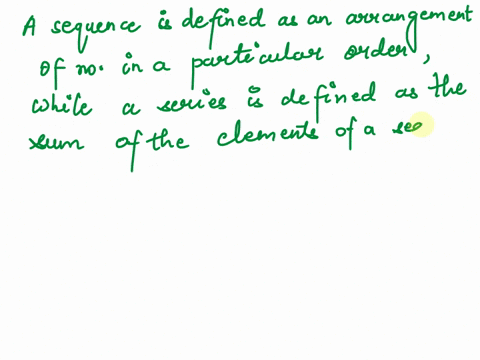 A sequence is defined as an arrangement
of no. in a particular order,
while a series is defined as the
sum of the elements of a se